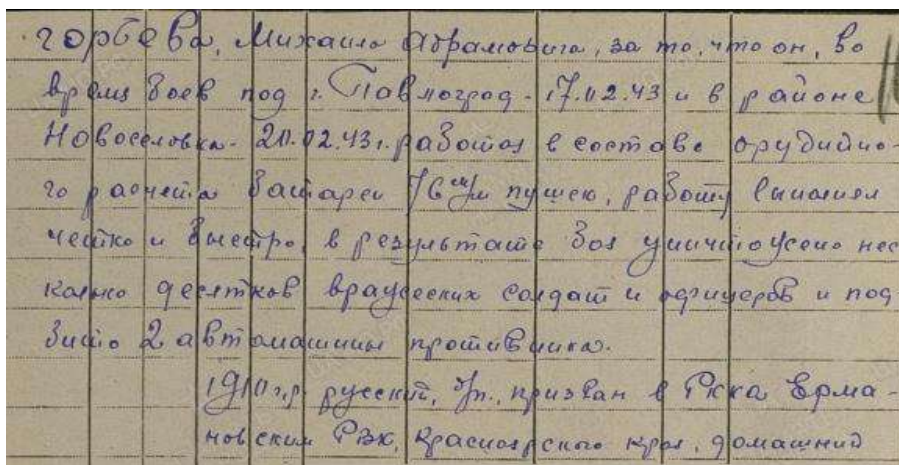 горбева, Михаила Абрамовича, за то, что он, во
время боев под г. Павлоград - 17.02.43 и в районе
Новоселовка - 20.02.43 г. работая в составе орудийно-
го расчета батареи 76 м/м пушек, работу выполнял
четко и быстро, в результате боя уничтожено нес
колько десятков вражеских солдат и офицеров и под
бито 2 автомашины противника.
1910 г.р. русский, б/п., призван в РККА Ерма-
новским РВК, Красноярского края, домашний